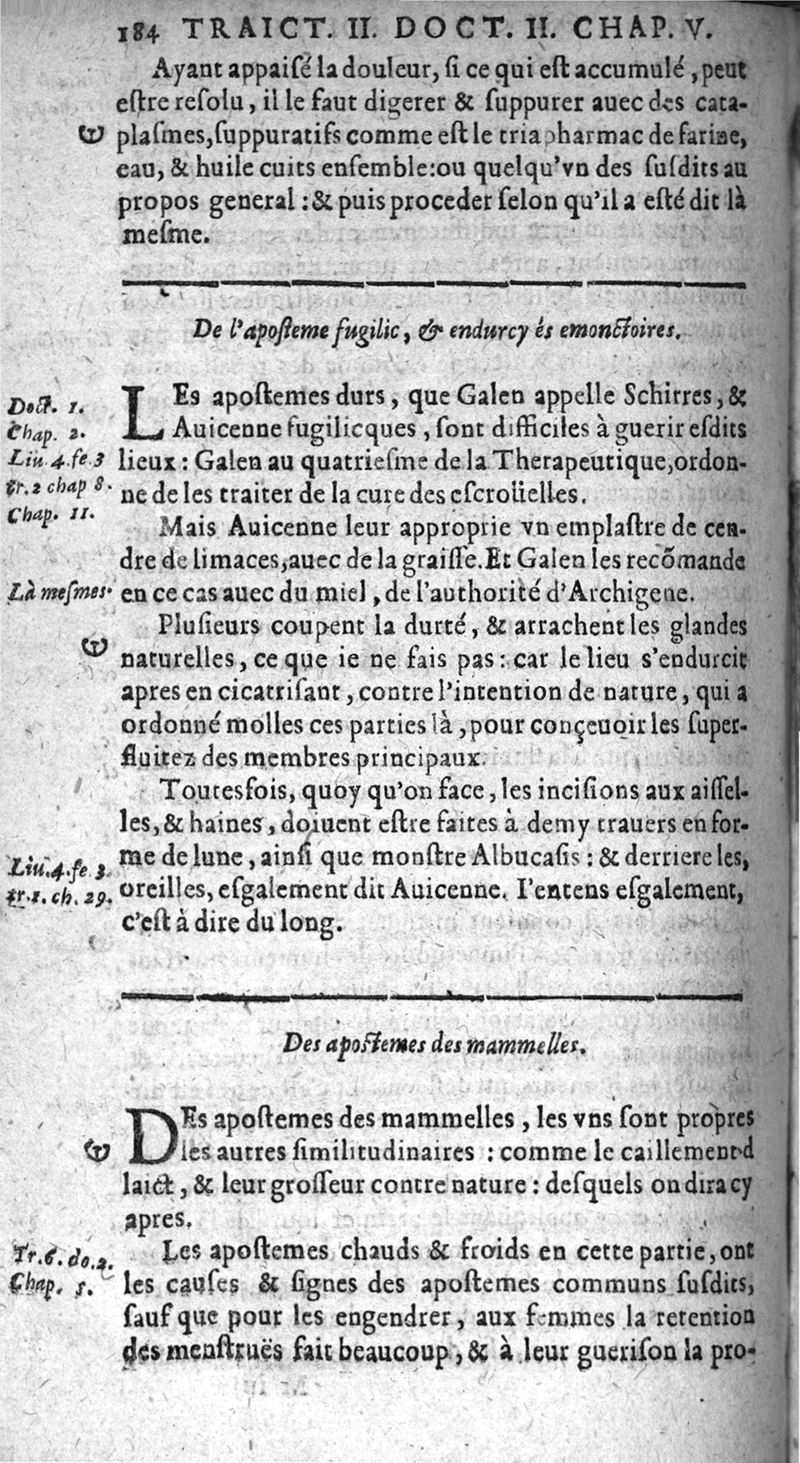 184 TRAICT. II. DOCT. II. CHAP. V.
Ayant appaiſé la douleur, ſi ce qui eſt accumulé, peut
eſtre reſolu, il le faut digerer & ſuppurer auec des cata-
plaſmes, ſuppuratifs comme eſt le triapharmac de farine,
eau, & huile cuits enſemble: ou quelqu'vn des ſuſdits au
propos general : & puis proceder ſelon qu'il a eſté dit là
meſme.
De l'apoſteme fugilic, & endurcy és emonctoires.
Doct. 1.
Chap. 2.
Liu. 4. fe 3
tr. 2 chap 8.
Chap. 11.
LEs apoſtemes durs, que Galen appelle Schirres, &
Auicenne fugilicques, ſont difficiles à guerir eſdits
lieux : Galen au quatrieſme de la Therapeutique, ordon-
ne de les traiter de la cure des eſcroüelles.
Mais Auicenne leur approprie vn emplaſtre de cen-
dre de limaces, auec de la graiſſe. Et Galen les recõmande
Là meſmes.
en ce cas auec du miel, de l'authorité d'Archigene.
Pluſieurs coupent la durté, & arrachent les glandes
naturelles, ce que ie ne fais pas : car le lieu s'endurcit
apres en cicatriſant, contre l'intention de nature, qui a
ordonné molles ces parties là, pour conçeuoir les ſuper-
fluitez des membres principaux.
Toutesfois, quoy qu'on face, les inciſions aux aiſſel-
les, & haines, doiuent eſtre faites à demy trauers en for-
Liu. 4. fe 3.
tr. 1. ch. 29.
me de lune, ainſi que monſtre Albucaſis : & derriere les,
oreilles, eſgalement dit Auicenne. I'entens eſgalement,
c'eſt à dire du long.
Des apoſtemes des mammelles.
DEs apoſtemes des mammelles, les vns ſont propres
les autres ſimilitudinaires : comme le caillement d
laict, & leur groſſeur contre nature : deſquels on dira cy
apres.
Tr. 6. do. 2.
Chap. 5.
Les apoſtemes chauds & froids en cette partie, ont
les cauſes & ſignes des apoſtemes communs ſuſdits,
ſauf que pour les engendrer, aux femmes la retention
des menſtruës fait beaucoup, & à leur gueriſon la pro-